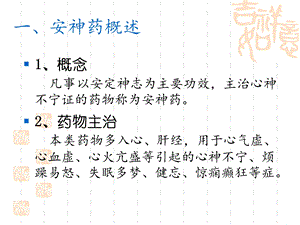 一、安神药概述
1、概念
凡事以安定神志为主要功效，主治心神
不宁证的药物称为安神药。
2、药物主治
本类药物多入心、肝经，用于心气虚、
心血虚、心火亢盛等引起的心神不宁、烦
躁易怒、失眠多梦、健忘、惊痫癫狂等症。
吉祥
如意